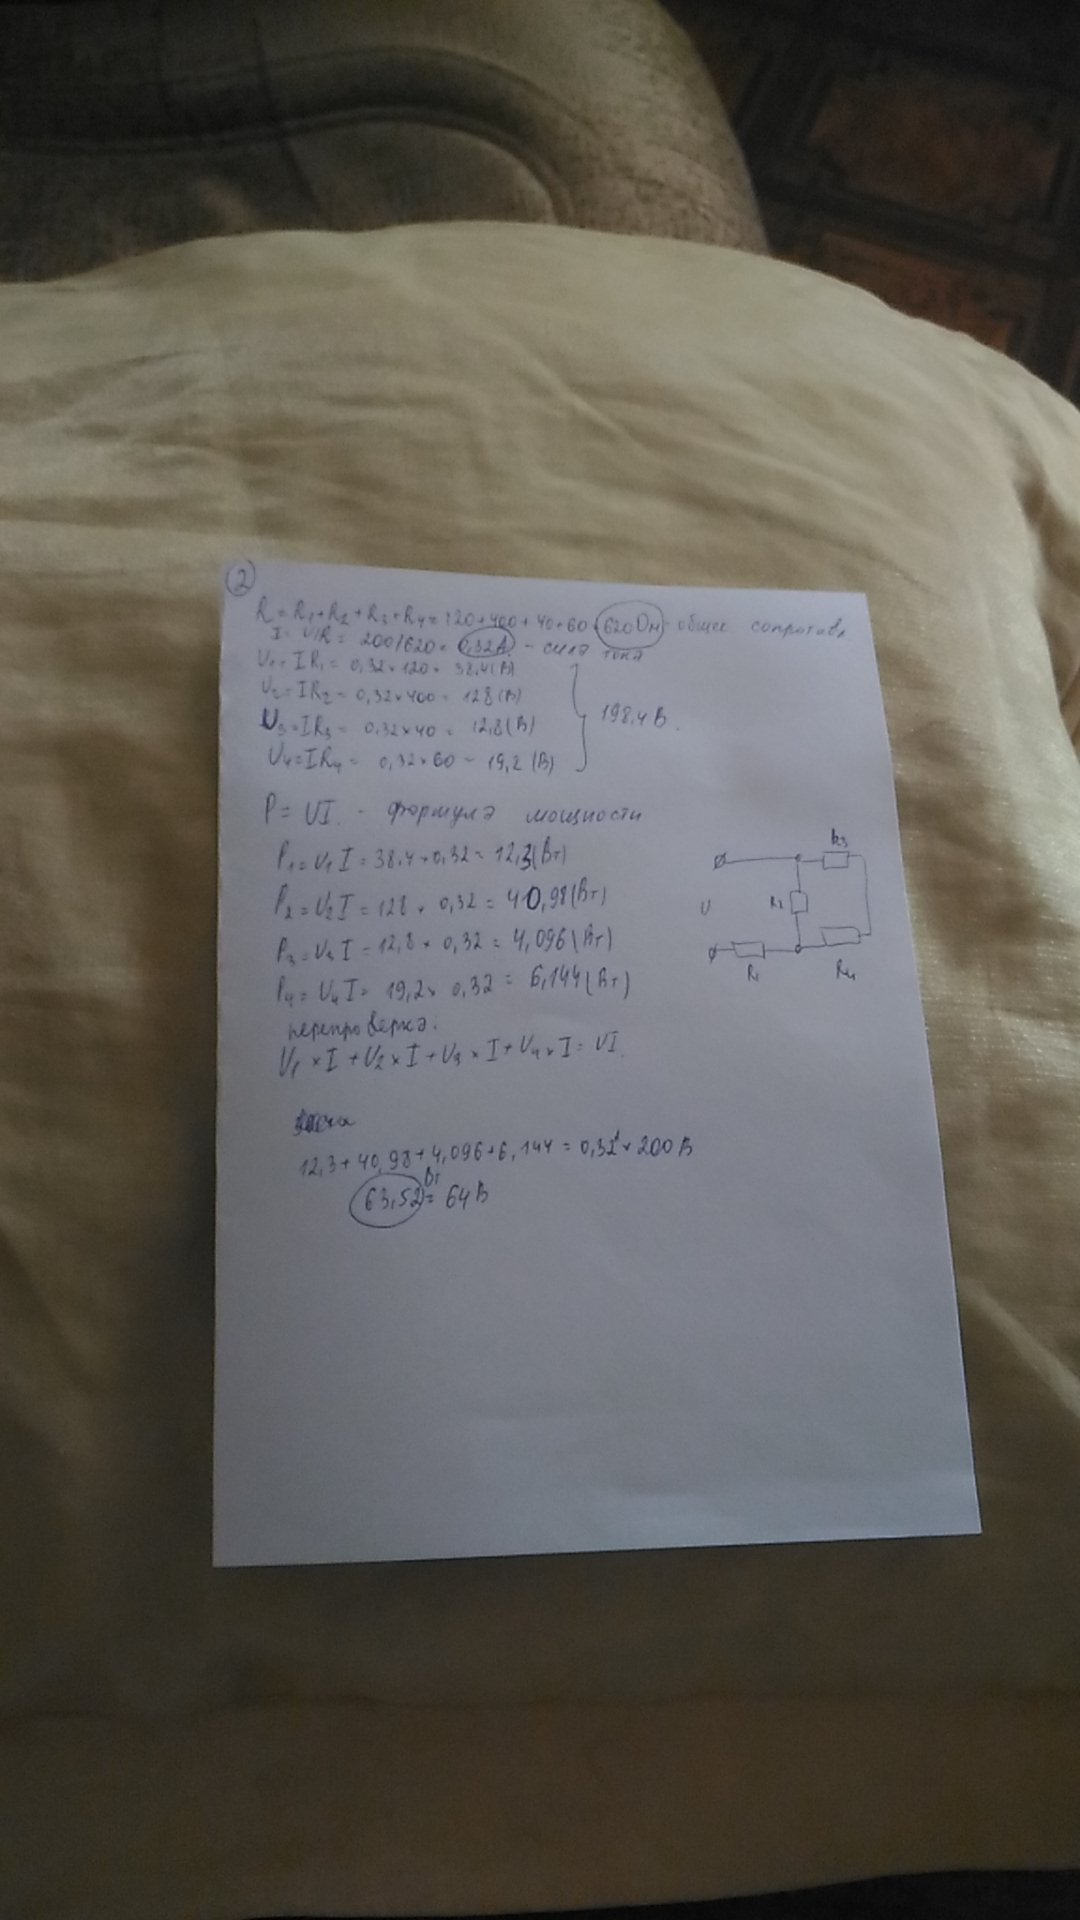 2
R = R1 + R2 + R3 + R4 = 120 + 400 + 40 + 60 = 620 Ом - общее сопротивл
I = U/R = 200/620 = 0,32А - сила тока
U1 = IR1 = 0,32 × 120 = 38,4(В)
U2 = IR2 = 0,32 × 400 = 128(В)
U3 = IR3 = 0,32 × 40 = 12,8(В)
U4 = IR4 = 0,32 × 60 = 19,2(В)
198,4 В.
P = UI. - формула мощности
P1 = U1 I = 38.4 × 0,32 = 12,3(Вт)
P2 = U2 I = 128 × 0,32 = 40,98(Вт)
P3 = U3 I = 12,8 × 0,32 = 4,096(Вт)
P4 = U4 I = 19,2 × 0,32 = 6,144(Вт)
R3
R2
U
R1
R4
перепроверка:
U1 × I + U2 × I + U3 × I + U4 × I = UI.
12,3 + 40,98 + 4,096 + 6,144 = 0,32 × 200 В
63,52 Вт = 64 В